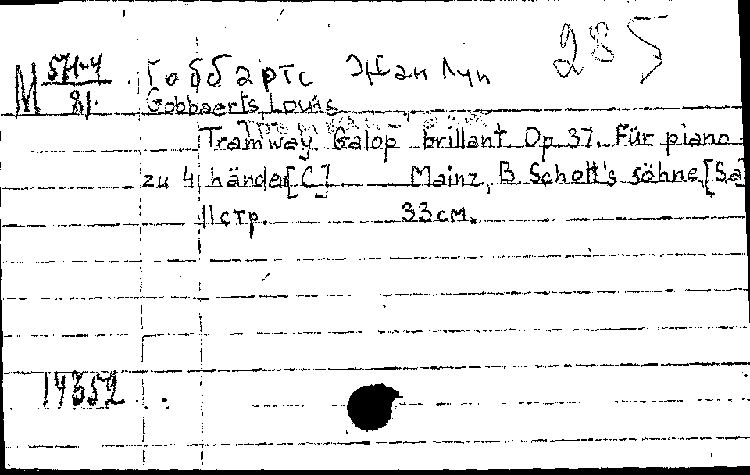 285
М 571-4 Гоббартс Жан Луи
81. Gobbaerts Louis
Tramway. Galop brillant Op. 37. Für piano
zu 4 händen[C] Mainz, B. Schott's söhne,[Sa]
11 стр. 33 см.
14352